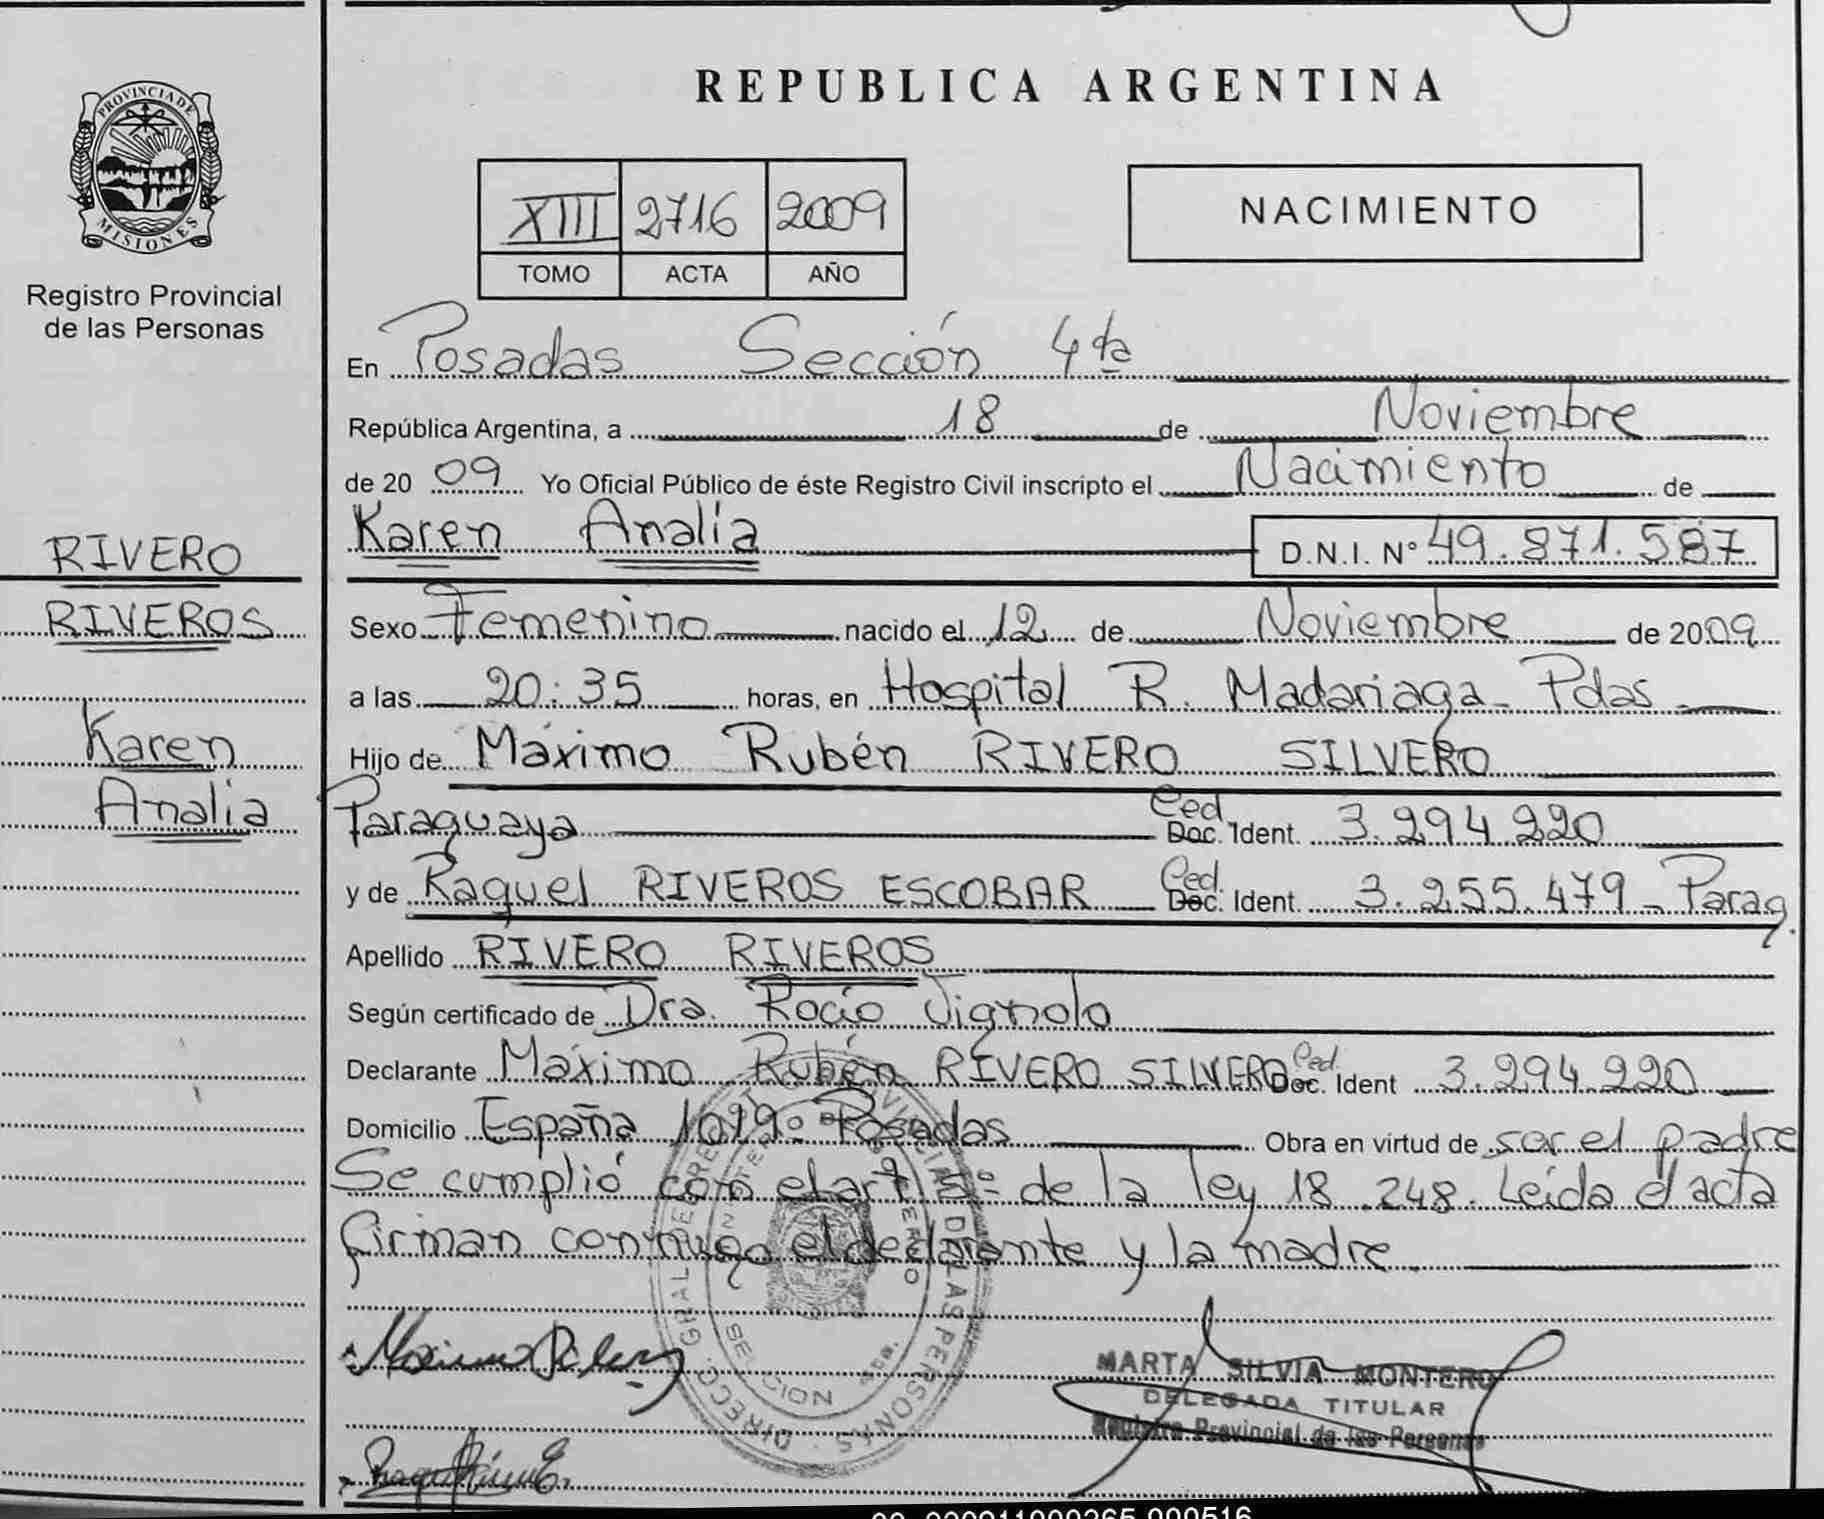 PROVINCIA DE
MISIONES
Registro Provincial
de las Personas
RIVERO
RIVEROS
Karen
Analía
REPUBLICA ARGENTINA
XIII 2716 2009
TOMO ACTA AÑO
NACIMIENTO
En Posadas Sección 4ta
República Argentina, a 18 de Noviembre
de 20 09 Yo Oficial Público de éste Registro Civil inscripto el Nacimiento de
Karen Analía D.N.I. N° 49.871.587
Sexo Femenino nacido el 12 de Noviembre de 2009
a las 20:35 horas, en Hospital R. Madariaga - Pdas
Hijo de Máximo Rubén RIVERO SILVERO
Paraguaya Ced. Doc. Ident. 3.294.220
y de Raquel RIVEROS ESCOBAR Ced. Doc. Ident. 3.255.479 - Parag.
Apellido RIVERO RIVEROS
Según certificado de Dra. Rocío Vignolo
Declarante Máximo Rubén RIVERO SILVERO Ced. Doc. Ident 3.294.220
Domicilio España 1019 - Posadas Obra en virtud de ser el padre
Se cumplió con el art 5° de la ley 18.248. Leída el acta
firman conmigo el declarante y la madre.
MARTA SILVIA MONTERO
DELEGADA TITULAR
Registro Provincial de las Personas